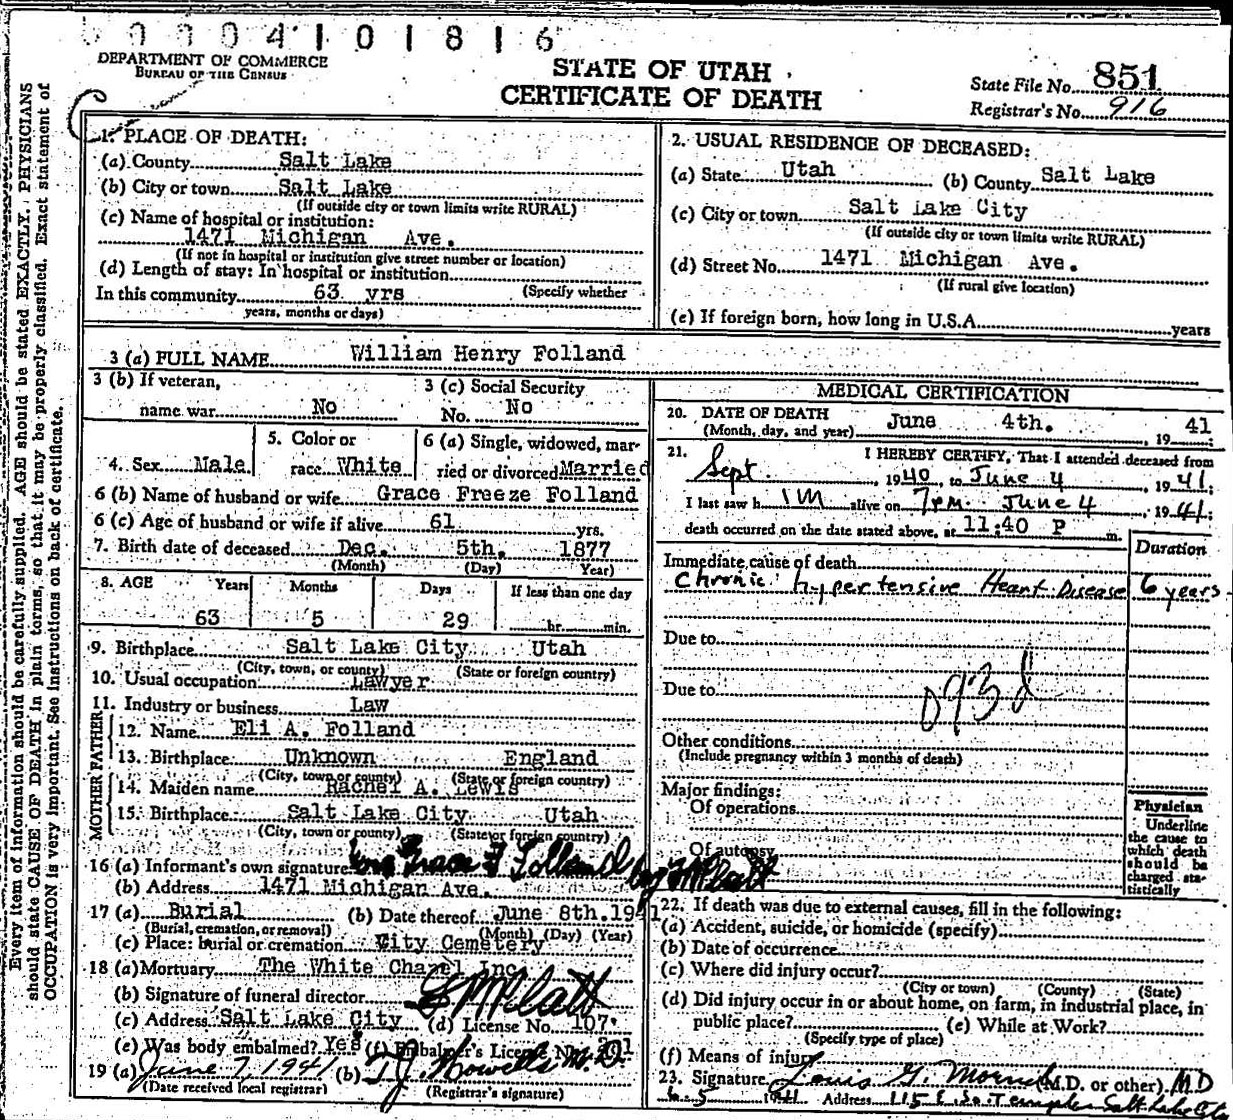 0004101816
DEPARTMENT OF COMMERCE
BUREAU OF THE CENSUS
STATE OF UTAH
CERTIFICATE OF DEATH
State File No. 851
Registrar's No. 916
Every item of information should be carefully supplied. AGE should be stated EXACTLY. PHYSICIANS
should state CAUSE OF DEATH in plain terms, so that it may be properly classified. Exact statement of
OCCUPATION is very important. See instructions on back of certificate.
1. PLACE OF DEATH:
(a) County Salt Lake
(b) City or town Salt Lake
(If outside city or town limits write RURAL)
(c) Name of hospital or institution:
1471 Michigan Ave.
(If not in hospital or institution give street number or location)
(d) Length of stay: In hospital or institution
In this community 63 yrs (Specify whether
years, months or days)
2. USUAL RESIDENCE OF DECEASED:
(a) State Utah (b) County Salt Lake
(c) City or town Salt Lake City
(If outside city or town limits write RURAL)
(d) Street No. 1471 Michigan Ave.
(If rural give location)
(e) If foreign born, how long in U.S.A. years
3 (a) FULL NAME William Henry Folland
3 (b) If veteran,
name war No
3 (c) Social Security
No. No
4. Sex Male
5. Color or
race White
6 (a) Single, widowed, mar-
ried or divorced Married
6 (b) Name of husband or wife Grace Freeze Folland
6 (c) Age of husband or wife if alive 61 yrs.
7. Birth date of deceased Dec. 5th. 1877
(Month) (Day) Year)
8. AGE Years Months Days If less than one day
63 5 29 hr. min.
9. Birthplace Salt Lake City Utah
(City, town, or county) (State or foreign country)
10. Usual occupation Lawyer
11. Industry or business Law
FATHER
12. Name Eli A. Folland
13. Birthplace Unknown England
(City, town or county) (State or foreign country)
MOTHER
14. Maiden name Rachel A. Lewis
15. Birthplace Salt Lake City Utah
(City, town or county) (State or foreign country)
16 (a) Informant's own signature Grace F Folland by
(b) Address 1471 Michigan Ave.
17 (a) Burial (b) Date thereof June 8th. 1941
(Burial, cremation, or removal) (Month) (Day) (Year)
(c) Place: burial or cremation City Cemetery
18 (a) Mortuary The White Chapel Inc
(b) Signature of funeral director
(c) Address Salt Lake City (d) License No. 107
(e) Was body embalmed? Yes (f) Embalmer's License No.
19 (a) June 7 1941 (b) T.J. Howells M.D.
(Date received local registrar) (Registrar's signature)
MEDICAL CERTIFICATION
20. DATE OF DEATH
(Month, day, and year) June 4th. , 19 41;
21. I HEREBY CERTIFY, That I attended deceased from
Sept. , 1940, to June 4 , 1941;
I last saw h im alive on 7pm. June 4 , 1941;
death occurred on the date stated above, at 11:40 P m.
Duration
Immediate cause of death
Chronic hypertensive Heart Disease 6 years
Due to
Due to
093d
Other conditions
(Include pregnancy within 3 months of death)
Major findings:
Of operations
Of autopsy
Physician
Underline
the cause to
which death
should be
charged sta-
tistically
22. If death was due to external causes, fill in the following:
(a) Accident, suicide, or homicide (specify)
(b) Date of occurrence
(c) Where did injury occur?
(City or town) (County) (State)
(d) Did injury occur in or about home, on farm, in industrial place, in
public place? (e) While at Work?
(Specify type of place)
(f) Means of injury
23. Signature Louis G. (M.D. or other) M D
6 5 1941 Address 115 E. So. Temple Salt Lake